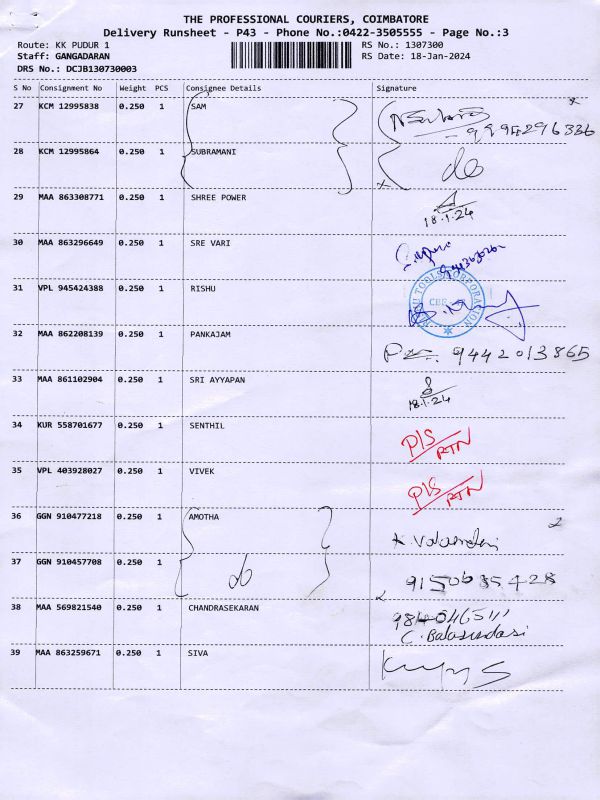 THE PROFESSIONAL COURIERS, COIMBATORE
Delivery Runsheet - P43 - Phone No.:0422-3505555 - Page No.:3
Route: KK PUDUR 1 RS No.: 1307300
Staff: GANGADARAN RS Date: 18-Jan-2024
DRS No.: DCJB130730003
S No Consignment No Weight PCS Consignee Details Signature
27 KCM 12995838 0.250 1 SAM
9994296336
28 KCM 12995864 0.250 1 SUBRAMANI do
29 MAA 863308771 0.250 1 SHREE POWER
18.1.24
30 MAA 863296649 0.250 1 SRE VARI
31 VPL 945424388 0.250 1 RISHU
TOOLS CORPORATION
32 MAA 862208139 0.250 1 PANKAJAM
9442013865
33 MAA 861102904 0.250 1 SRI AYYAPAN
18.1.24
34 KUR 558701677 0.250 1 SENTHIL P/S RTN
35 VPL 403928027 0.250 1 VIVEK P/S RTN
36 GGN 910477218 0.250 1 AMOTHA
37 GGN 910457708 0.250 1 do 9150635428
38 MAA 569821540 0.250 1 CHANDRASEKARAN
C. Balasundari
39 MAA 863259671 0.250 1 SIVA